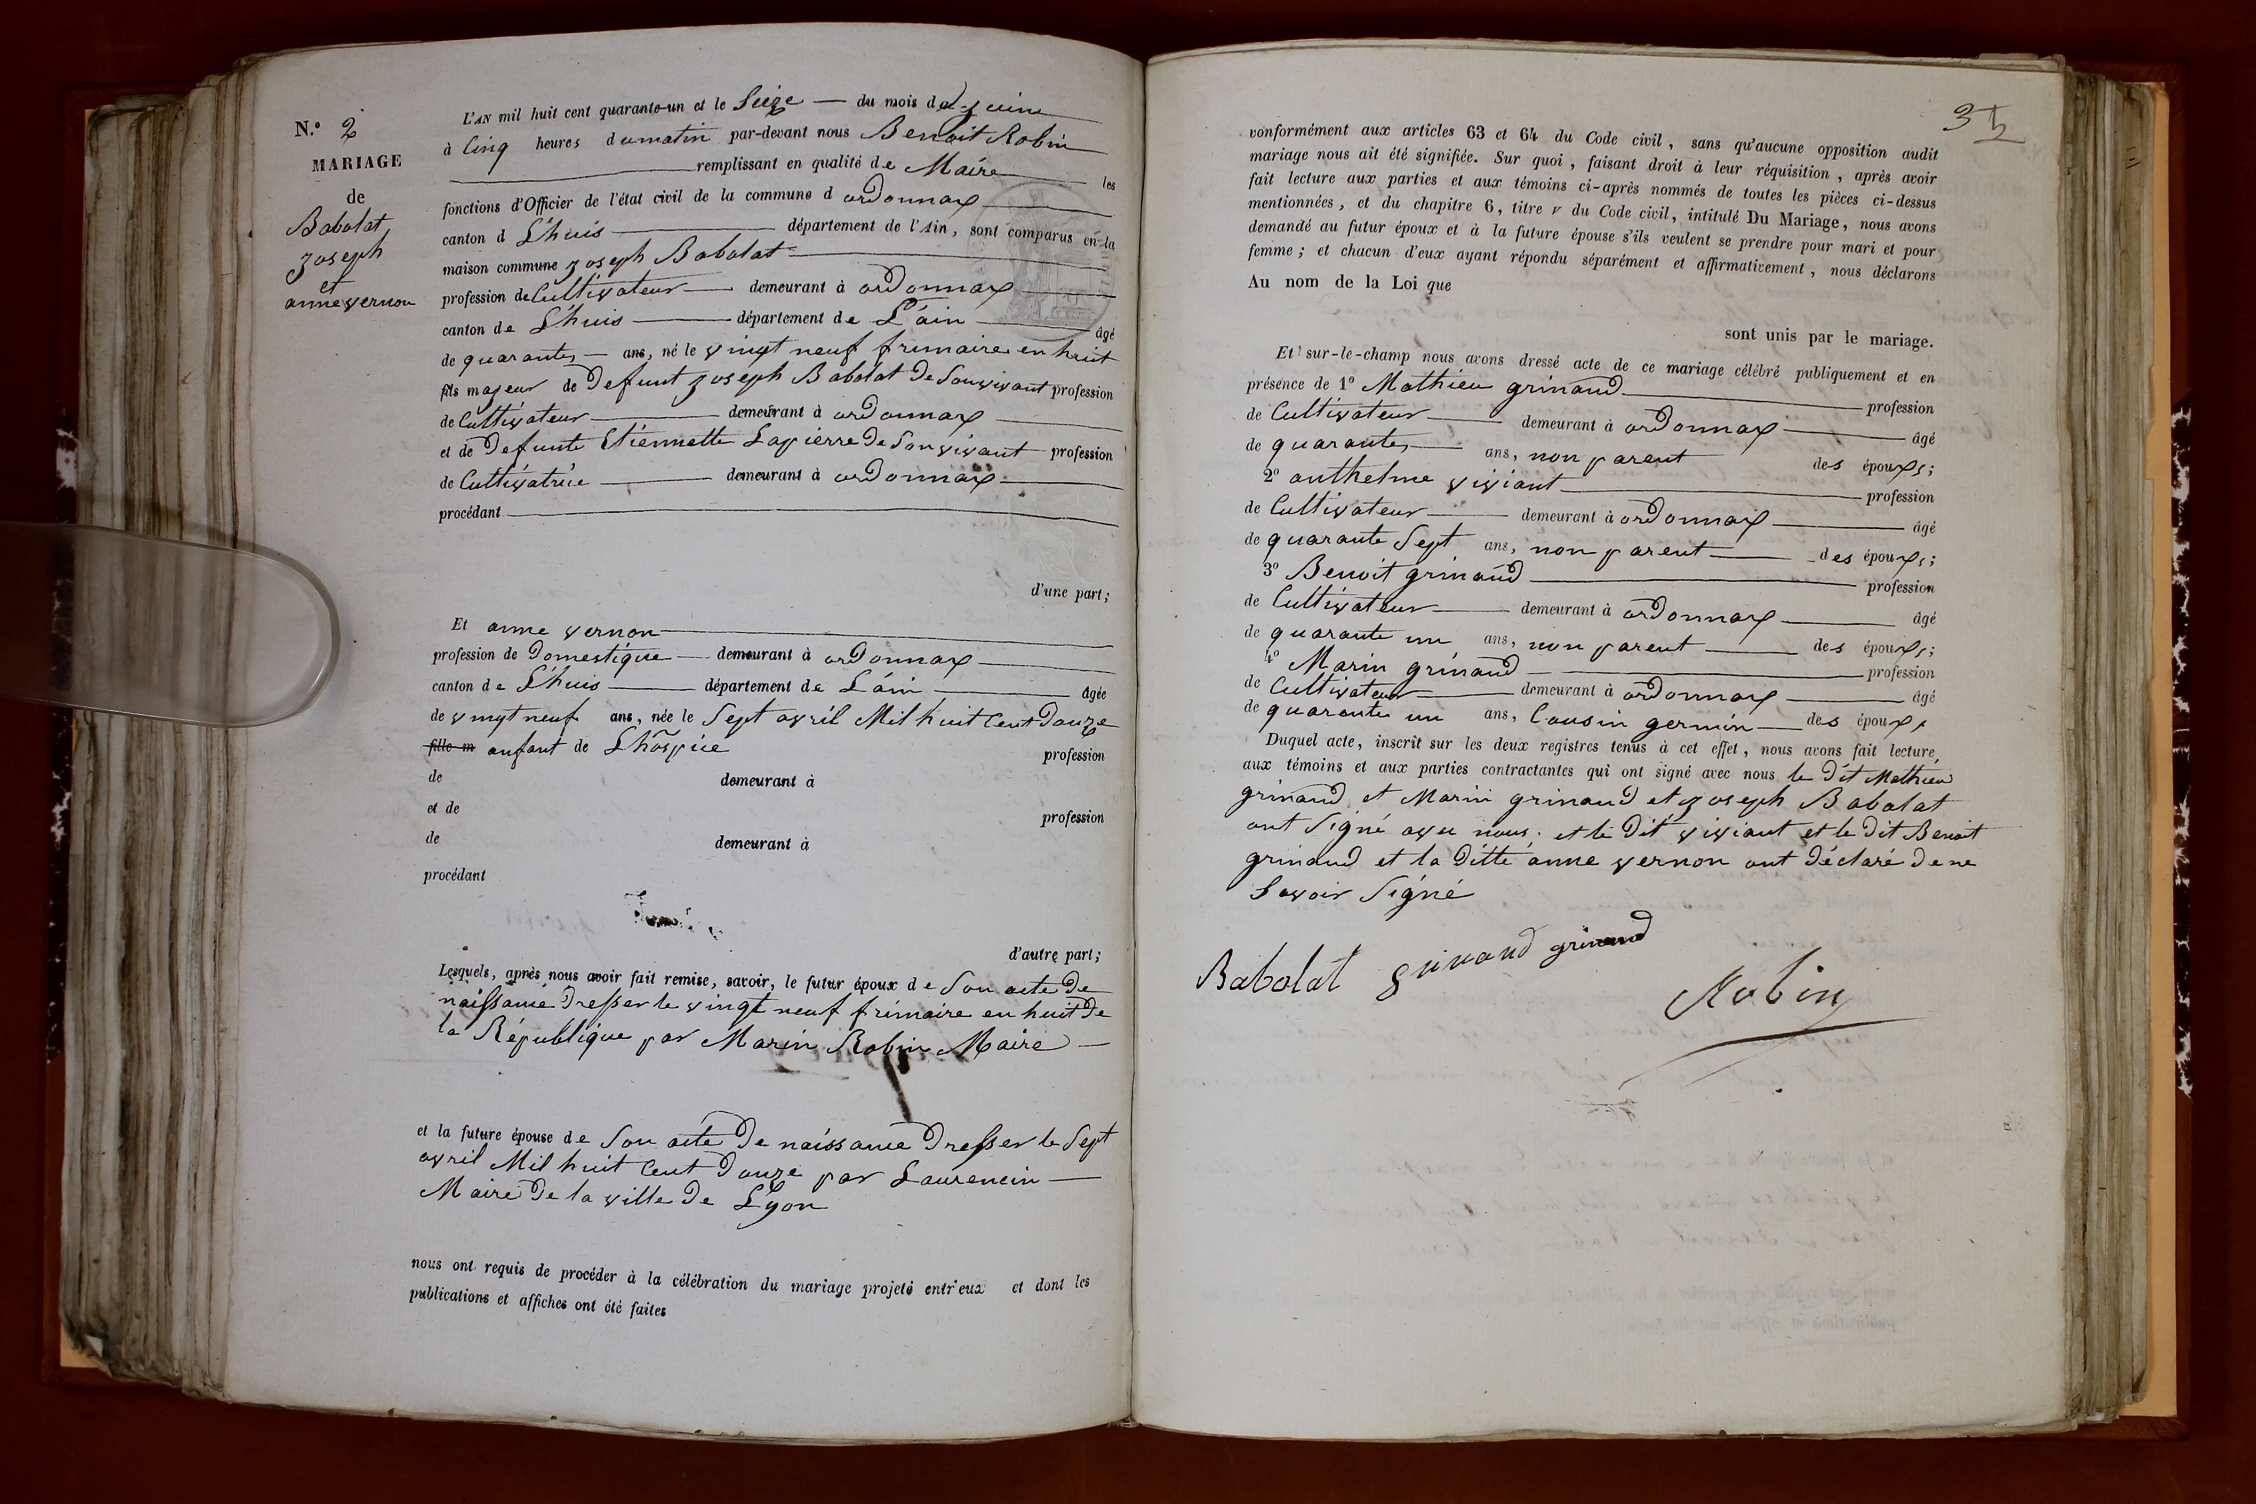 N.º 2
MARIAGE
de
Babolat
joseph
et
anne vernon
L'AN mil huit cent quarante-un et le Seize du mois de juin
à Cinq heures du matin par-devant nous Benoit Robin
remplissant en qualité de Maire les
fonctions d'Officier de l'état civil de la commune d ordonnax
canton d L'huis département de l'Ain, sont comparus en la
maison commune joseph Babolat
profession de Cultivateur demeurant à ordonnax
canton de L'huis département de L'ain âgé
de quarantes ans, né le vingt neuf frimaire en huit
fils majeur de Defunt joseph Babolat de Son vivant profession
de Cultivateur demeurant à ordonnax
et de Defunte Etiennette Lapierre de Son vivant profession
de Cultivatrice demeurant à ordonnax
procédant
d'une part;
Et anne vernon
profession de Domestique demeurant à ordonnax
canton de L'huis département de L'ain âgée
de vingt neuf ans, née le Sept avril Mil huit Cent Douze
fille m anfant de L'hospice profession
de demeurant à
et de profession
de demeurant à
procédant
d'autre part;
Lesquels, après nous avoir fait remise, savoir, le futur époux de Son acte De
naissance Dresser le vingt neuf frimaire en huit De
la République par Marin Robin Maire
et la future épouse de Son acte De naissance Dresser le Sept
avril Mil huit Cent Douze par Laurencin
Maire De la ville De Lyon
nous ont requis de procéder à la célébration du mariage projeté entr'eux et dont les
publications et affiches ont été faites
conformément aux articles 63 et 64 du Code civil, sans qu'aucune opposition audit
mariage nous ait été signifiée. Sur quoi, faisant droit à leur réquisition, après avoir
fait lecture aux parties et aux témoins ci-après nommés de toutes les pièces ci-dessus
mentionnées, et du chapitre 6, titre V du Code civil, intitulé Du Mariage, nous avons
demandé au futur époux et à la future épouse s'ils veulent se prendre pour mari et pour
femme; et chacun d'eux ayant répondu séparément et affirmativement, nous déclarons
Au nom de la Loi que
sont unis par le mariage.
Et sur-le-champ nous avons dressé acte de ce mariage célébré publiquement et en
présence de 1º Mathieu grinand profession
de Cultivateur demeurant à ordonnax âgé
de quarantes ans, non parent des époux;
2º anthelme viviant profession
de Cultivateur demeurant à ordonnax âgé
de quarante Sept ans, non parent des époux;
3º Benoit grinand profession
de Cultivateur demeurant à ordonnax âgé
de quarante un ans, non parent des époux;
4º Marin grinand profession
de Cultivateur demeurant à ordonnax âgé
de quarante un ans, Cousin germin des époux
Duquel acte, inscrit sur les deux registres tenus à cet effet, nous avons fait lecture
aux témoins et aux parties contractantes qui ont signé avec nous le Dit Mathieu
grinand et Marin grinand et joseph Babolat
ont Signé avec nous. et le Dit viviant et le Dit Benoit
grinand et la Ditte anne vernon ont Déclaré De ne
Savoir Signé
Babolat grinand grinand
Robin